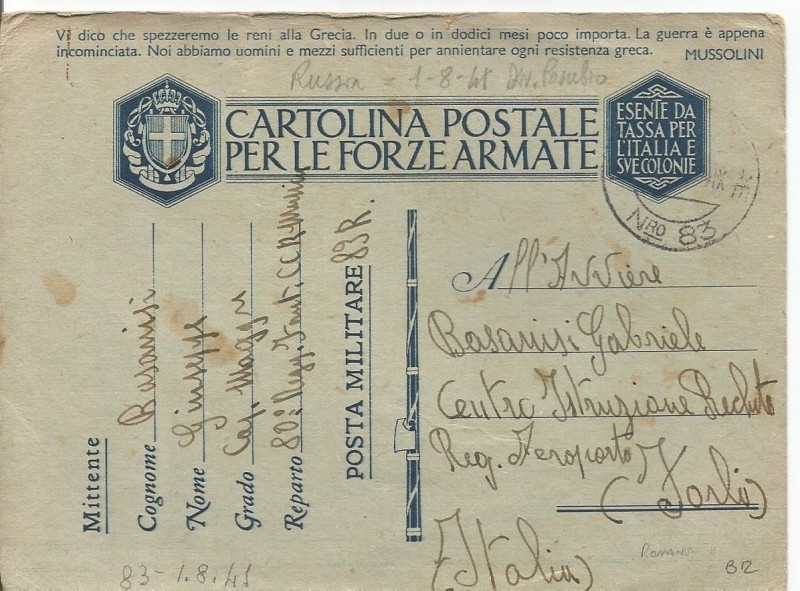 Vi dico che spezzeremo le reni alla Grecia. In due o in dodici mesi poco importa. La guerra è appena
incominciata. Noi abbiamo uomini e mezzi sufficienti per annientare ogni resistenza greca.
MUSSOLINI
Russia = 1-8-41 Div. Pasubio
CARTOLINA POSTALE
PER LE FORZE ARMATE
ESENTE DA
TASSA PER
L'ITALIA E
SVE COLONIE
NRO 83
Mittente
Cognome Basanisi
Nome Giuseppe
Grado Cap. Magg.
Reparto 80° Regg. Fant. CCR
POSTA MILITARE 83 R.
All'Aviere
Basanisi Gabriele
Centro Istruzione Reclute
Reg. Aeroporto
(Forlì)
(Italia)
83-1.8.41
ROMANIA
B12